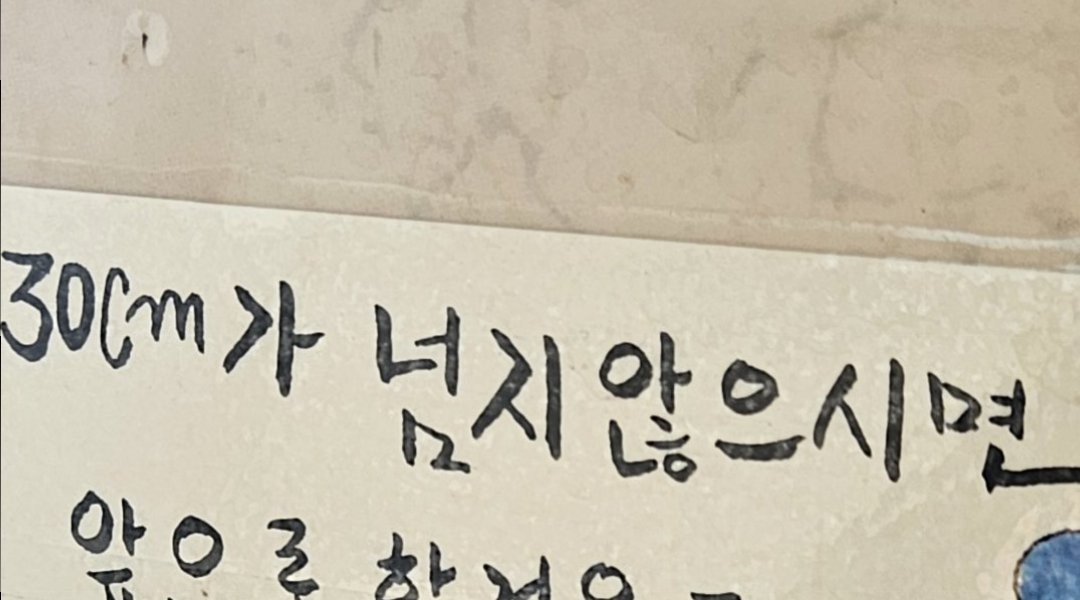 30cm가 넘지않으시면
앞으로 한걸음